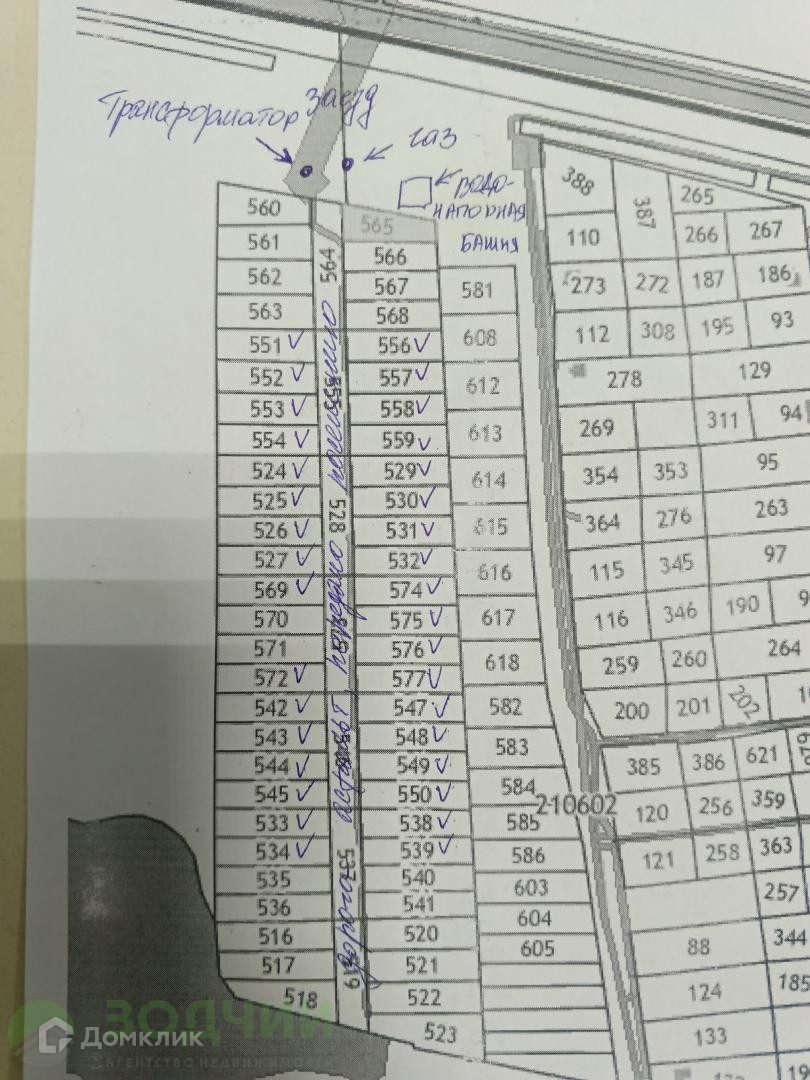 Трансформатор
заезд
газ
ВОДО-
НАПОРНАЯ
БАШНЯ
560
561
562
563
551
552
553
554
524
525
526
527
569
570
571
572
542
543
544
545
533
534
535
536
516
517
518
564
528
537
дорога асфальт, передано
565
566
567
568
556
557
558
559
529
530
531
532
574
575
576
577
547
548
549
550
538
539
540
541
520
521
522
523
581
608
612
613
614
615
616
617
618
582
583
584
585
586
603
604
605
210602
388
387
265
110
266
267
273
272
187
186
112
308
195
93
278
129
269
311
94
354
353
95
364
276
263
115
345
97
116
346
190
259
260
264
200
201
202
385
386
621
120
256
359
121
258
363
257
88
344
124
185
133
ЗОДЧИЙ
агентство недвижимости
Домклик